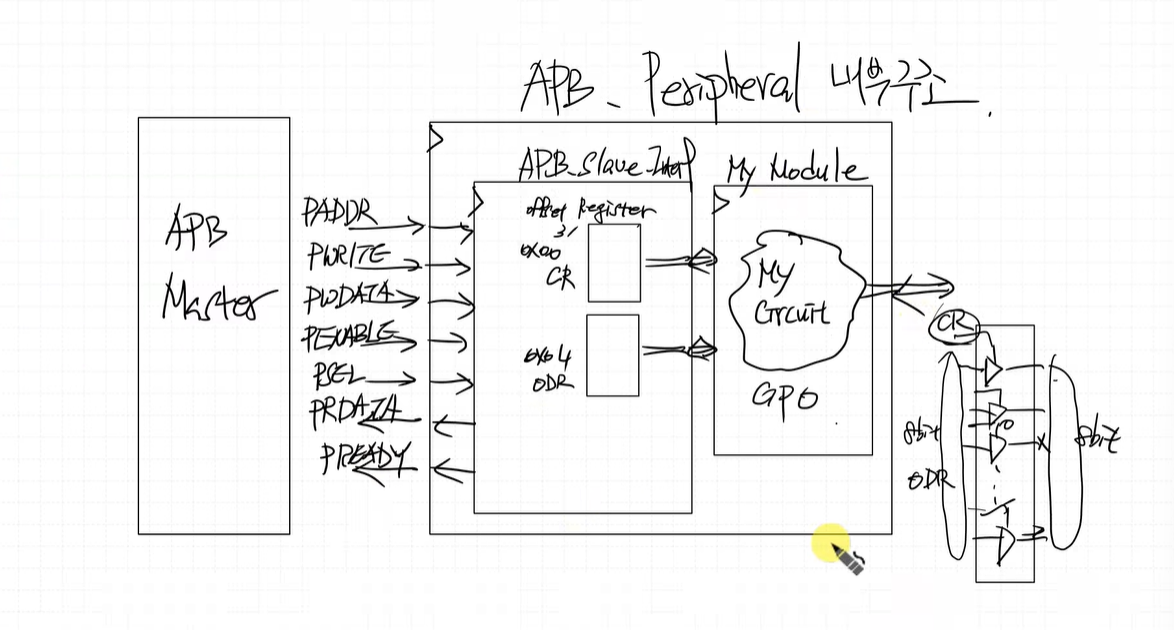 APB_Peripheral 내부구조.
APB
Master
PADDR
PWRITE
PWDATA
PENABLE
PSEL
PRDATA
PREADY
APB_Slave_Interf
offset Register
0x00
CR
0x04
ODR
My Module
My
Circuit
GPO
CR
8bit
ODR
8bit